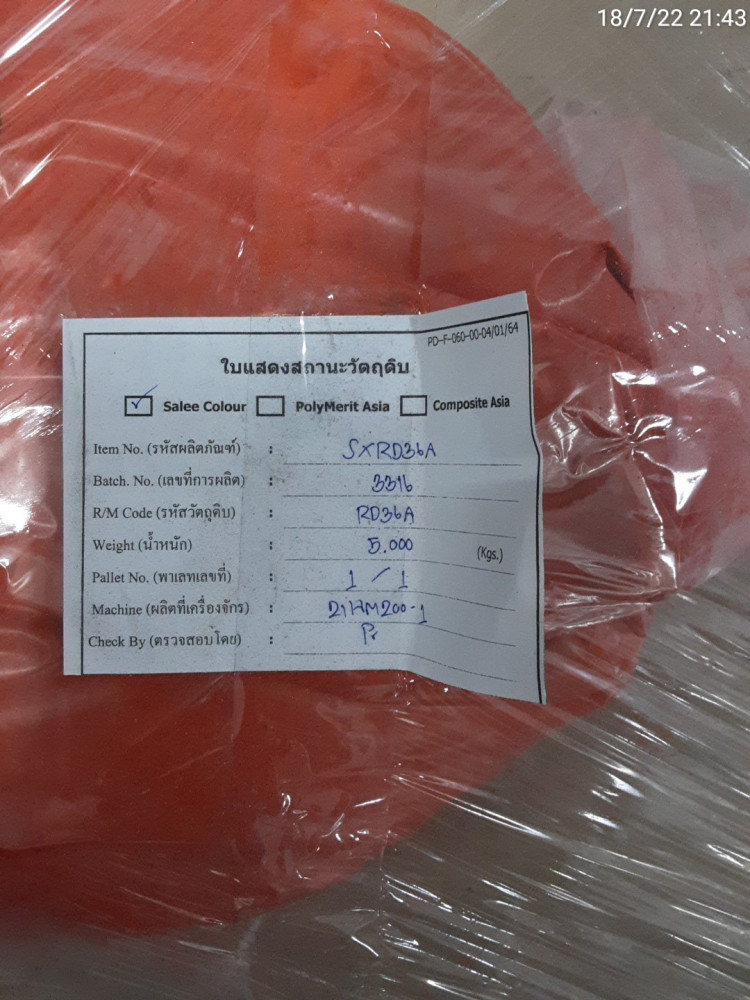 18/7/22 21:43
PD-F-060-00-04/01/64
ใบแสดงสถานะวัตถุดิบ
✓ Salee Colour PolyMerit Asia Composite Asia
Item No. (รหัสผลิตภัณฑ์) : SXRD36A
Batch. No. (เลขที่การผลิต) : 3316
R/M Code (รหัสวัตถุดิบ) : RD36A
Weight (น้ำหนัก) : 5.000 (Kgs.)
Pallet No. (พาเลทเลขที่) : 1 / 1
Machine (ผลิตที่เครื่องจักร) : 21HM200-1
Check By (ตรวจสอบโดย) :